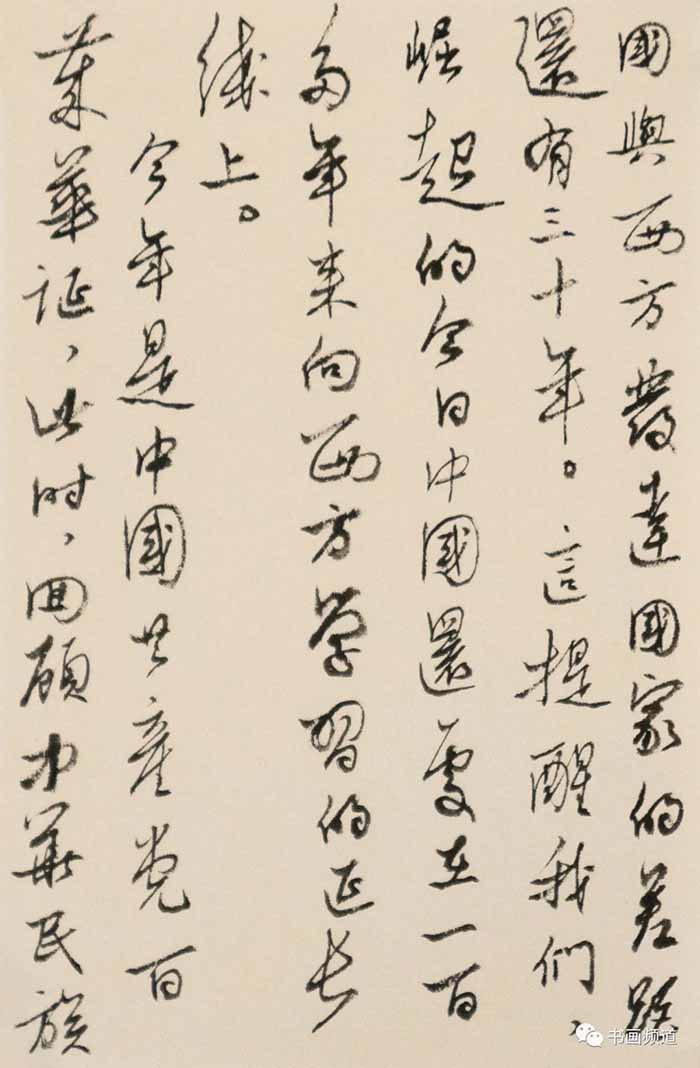 國與西方發達國家的差距
還有三十年。這提醒我们、
崛起的今日中國還處在一百
多年来向西方學習的延长
綫上。
今年是中國共産党百
年華誕，此时，回顧中華民族
书画频道